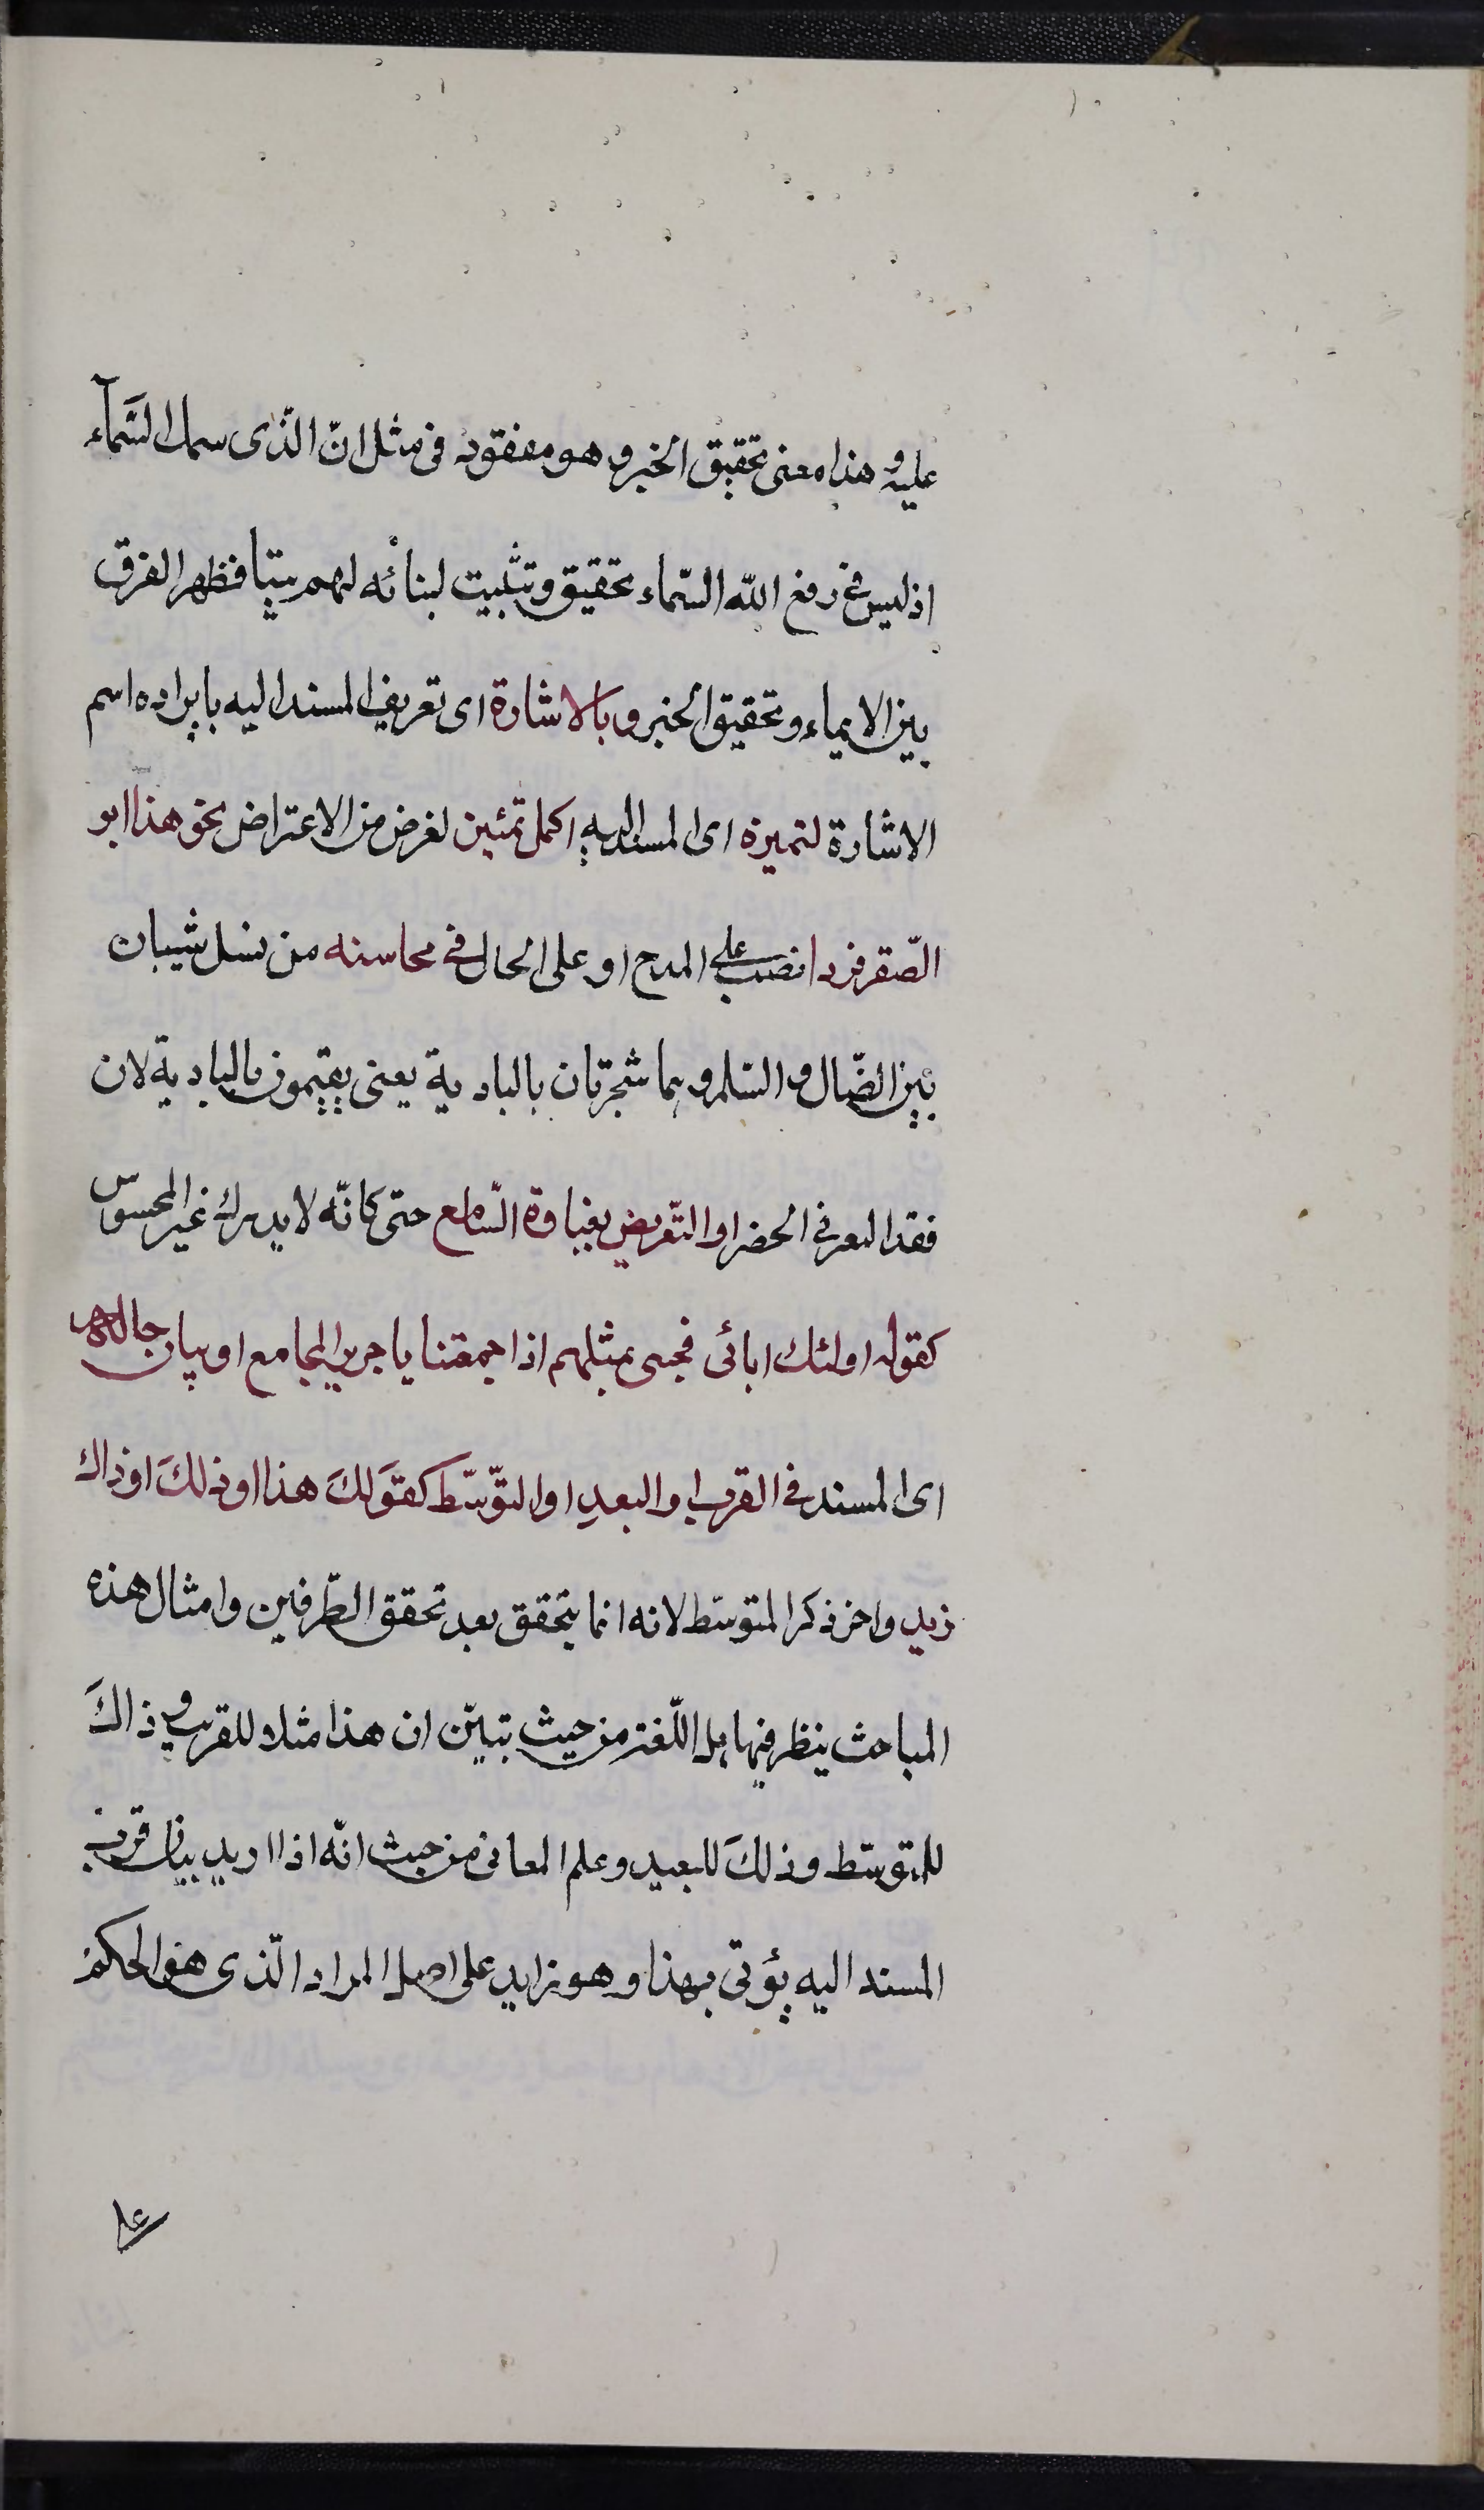 عليه وهذا معنى تحقيق الخبر وهو مفقود فى مثل انّ الذّى سمك السّمآء
اذ ليس فى رفع الله السّماء تحقيق وتثبيت لبنائه لهم بيتا فظهر الفرق
بين الايماء وتحقيق الخبر وبالاشارة اى تعريف المسند اليه بايراده اسم
الاشارة لتميزه اى المسند اليه اكمل تمئين لغرض من الاعتراض نحو هذا ابو
الصّقر فردا نصب على المدح او على الحال فى محاسنه من نسل شيبان
بين الضّال والسّلم وهما شجرتان بالبادية يعنى يقيمون بالبادية لان
فقد العز فى الحضر او التّعريض بغباوة السّامع حتى كانّه لا يدرك غير المحسوس
كقوله اولئك ابائى فجئى بمثلهم اذا جمعتنا يا جرير المجامع او بيان حاله
اى المسند فى القرب او البعد او التوّسّط كقَولكَ هذا او ذلكَ او ذاك
زيد واخر ذكر المتوسّط لانه انما يتحقق بعد تحقق الطّرفين وامثال هذه
المباحث ينظر فيها اهل اللّغة من حيث تبيّن ان هذا مثلا للقريب و ذاكَ
للمتوسّط وذلكَ للبعيد وعلم المعانى من حيث انّه اذا اريد بيان قرب
المسند اليه يؤتى بهذا وهو زايد على اصل المراد الّذى هو الحكم
على